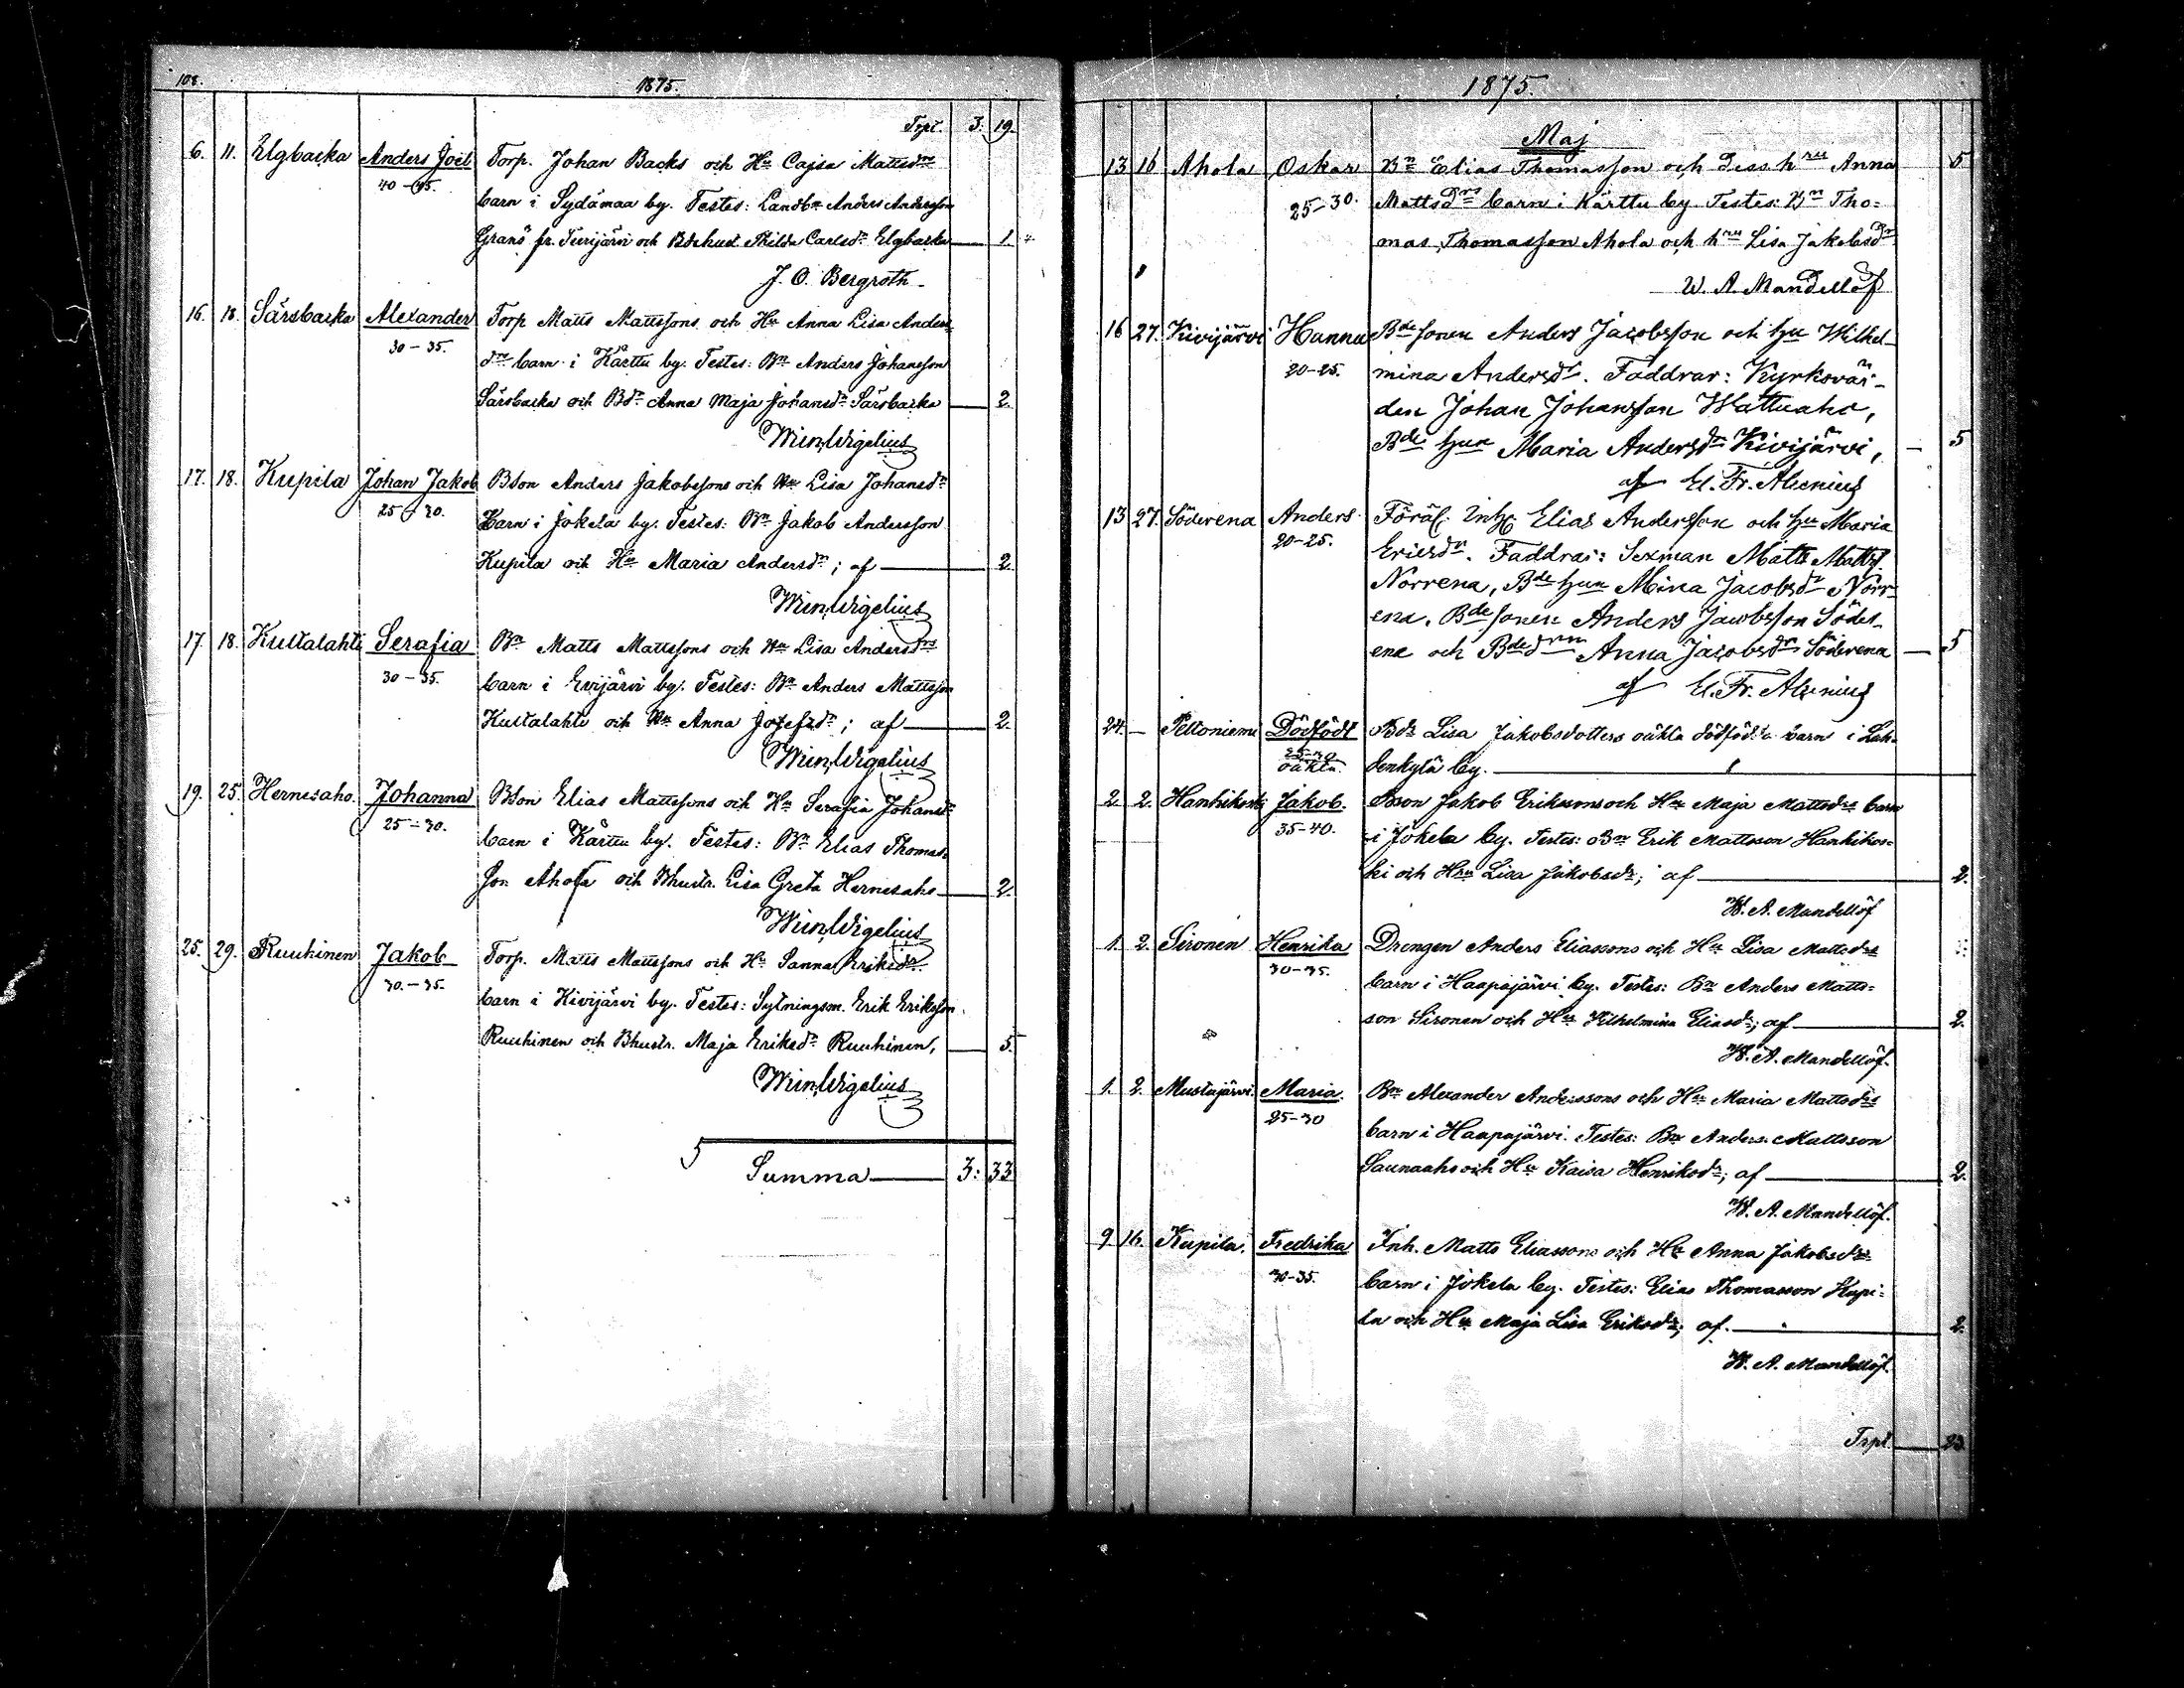 108.
1875.
Trpt. 3. 19.
6. 11. Elgbacka Anders Joel Torp. Johan Backs och Hu Cajsa Mattsdrs
40-45. barn i Sydämaa by. Testes: Landbn Anders Andersson
Granö fr. Terijärvi och Bdehust. Thilda Carlsdr Elgbacka — 1
J. O. Bergroth
16. 18. Särsbacka Alexander Torp Matts Mattssons och Hu Anna Lisa Anders
30-35. drs barn i Kärttu by. Testes: Bn Anders Johansson
Särsbacka och Bdr Anna Maja Johansdr Särsbacka — 2.
Wm Wigelius
17. 18. Kupila Johan Jakob BSon Anders Jakobssons och Hu Lisa Johansdr
25-30. barn i Jokela by. Testes: Bn Jakob Andersson
Kupila och Hu Maria Andersdr; af — 2.
Wm Wigelius
17. 18. Kultalahti Serafia Bn Matts Mattssons och Hu Lisa Andersdrs
30-35. barn i Evijärvi by. Testes: Bn Anders Mattsson
Kultalahti och Hu Anna Josefsdr; af — 2.
Wm Wigelius
19. 25. Hernesaho. Johanna BSon Elias Mattssons och Hu Serafia Johansdr
25-30. barn i Kärttu by. Testes: Bn Elias Thomas-
son Ahola och Bhustr. Lisa Greta Hernesaho — 2.
Wm Wigelius
25. 29. Ruuhinen Jakob Torp. Matts Mattssons och Hu Sanna Eriksdr
30.-35. barn i Kivijärvi by. Testes: Sytningsm. Erik Eriksson
Ruuhinen och Bhustr. Maja Eriksdr Ruuhinen, — 5.
Wm Wigelius
Summa — 3: 33
1875.
Maj
13 16 Ahola Oskar Bn Elias Thomasson och dess hru Anna 5
25-30. Mattsdrs barn i Kärttu by. Testes: Bn Tho=
mas Thomasson Ahola och hru Lisa Jakobsdr
W. A. Mandellöf
16 27. Kivijärvi Hanna Bdesonen Anders Jacobsson och hu Wilhel-
20-25. mina Andersdr. Faddrar: Kyrkovär-
den Johan Johansson Wattuaho,
Bde hun Maria Andersdr Kivijärvi, — 5
af E. Fr. Alcenius
13 27. Söderena Anders Inh. Elias Andersson och hu Maria
20-25. Ericsdr. Faddrar: Sexman Matts Matts.
Norrena, Bde hun Mina Jacobsdr Norr-
ena, Bdesonen Anders Jacobsson Söder-
ena och Bdedrn Anna Jacobsdr Söderena — 5
af E. Fr. Alcenius
24. — Peltoniemi Dödfödt Bdr Lisa Jakobsdotters oäkta dödfödda barn i Lah-
oäkta. denkylä by.
2. 2. Hanhikoski Jakob. Bson Jakob Erikssons och Hu Maja Mattsdrs barn
35-40. i Jokela by. Testes: Bn Erik Mattsson Hanhikos=
ki och Hru Lisa Jakobsdr; af — 2.
W. A. Mandellöf
1. 2. Sironen Henrika Drengen Anders Eliassons och Hu Lisa Mattsdrs
30-35. barn i Haapajärvi by. Testes: Bn Anders Matts=
son Sironen och Hu Wilhelmina Eliasdr; af — 2.
W. A. Mandellöf.
1. 2. Mustajärvi. Maria. Bn Alexander Anderssons och Hu Maria Mattsdrs
25-30 barn i Haapajärvi. Testes: Bn Anders Mattsson
Saunaaho och Hu Kaisa Henriksdr; af — 2.
W. A. Mandellöf.
9. 16. Kupila. Fredrika Inh. Matts Eliassons och Hu Anna Jakobsdrs
30-35. barn i Jokela by. Testes: Elias Thomasson Kupi=
la och Hu Maja Lisa Eriksdr; af. — 2.
W. A. Mandellöf.
Trpt. — 23.